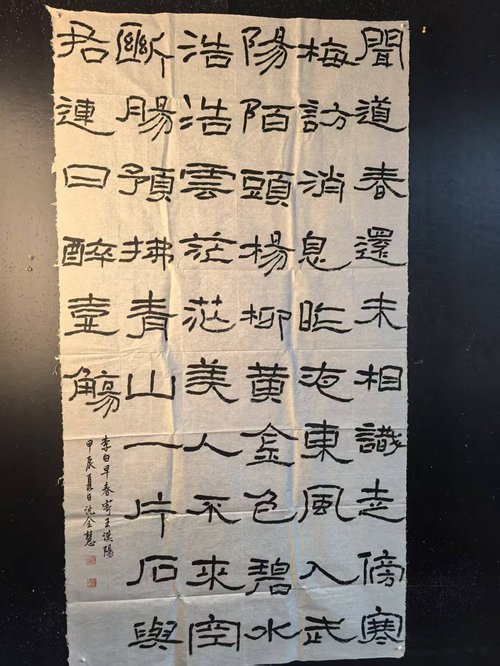 聞道春還未相識走傍寒
梅訪消息昨夜東風入武
陽陌頭楊柳黃金色碧水
浩浩雲茫茫美人不來空
斷腸預拂青山一片石與
君連日醉壺觴
李白早春寄王漢陽
甲辰夏日沈全慧